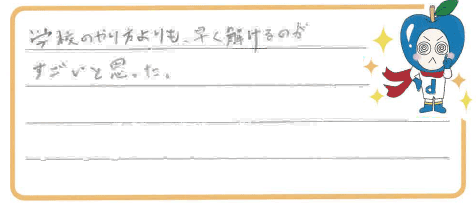 学校のやり方よりも、早く解けるのが
すごいと思った。